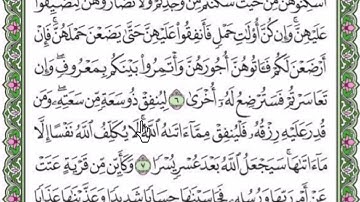 أَسْكِنُوهُنَّ مِنْ حَيْثُ سَكَنتُم مِّن وُجْدِكُمْ وَلَا تُضَآرُّوهُنَّ لِتُضَيِّقُوا۟
عَلَيْهِنَّ ۚ وَإِن كُنَّ أُو۟لَٰتِ حَمْلٍ فَأَنفِقُوا۟ عَلَيْهِنَّ حَتَّىٰ يَضَعْنَ حَمْلَهُنَّ ۚ فَإِنْ
أَرْضَعْنَ لَكُمْ فَـَٔاتُوهُنَّ أُجُورَهُنَّ ۖ وَأْتَمِرُوا۟ بَيْنَكُم بِمَعْرُوفٍ ۖ وَإِن
تَعَاسَرْتُمْ فَسَتُرْضِعُ لَهُۥٓ أُخْرَىٰ ٦ لِيُنفِقْ ذُو سَعَةٍ مِّن سَعَتِهِۦ ۖ وَمَن
قُدِرَ عَلَيْهِ رِزْقُهُۥ فَلْيُنفِقْ مِمَّآ ءَاتَىٰهُ ٱللَّهُ ۚ لَا يُكَلِّفُ ٱللَّهُ نَفْسًا إِلَّا
مَآ ءَاتَىٰهَا ۚ سَيَجْعَلُ ٱللَّهُ بَعْدَ عُسْرٍ يُسْرًا ٧ وَكَأَيِّن مِّن قَرْيَةٍ عَتَتْ
عَنْ أَمْرِ رَبِّهَا وَرُسُلِهِۦ فَحَاسَبْنَٰهَا حِسَابًا شَدِيدًا وَعَذَّبْنَٰهَا عَذَابًا